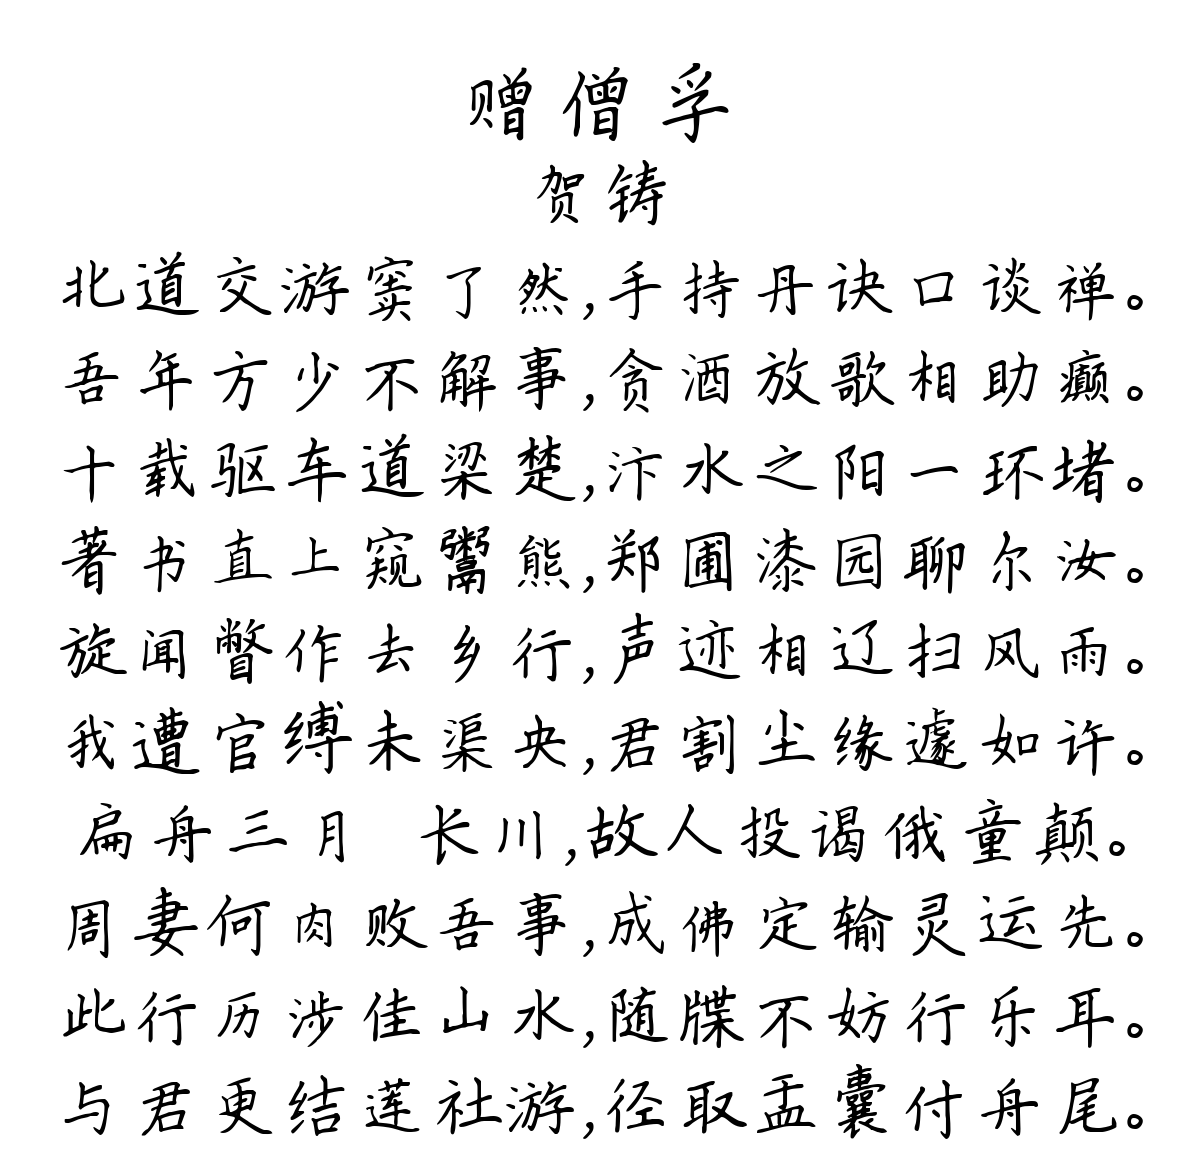 赠僧孚
贺铸
北道交游窦了然,手持丹诀口谈禅。
吾年方少不解事,贪酒放歌相助癫。
十载驱车道梁楚,汴水之阳一环堵。
著书直上窥鬻熊,郑圃漆园聊尔汝。
旋闻瞥作去乡行,声迹相辽扫风雨。
我遭官缚未渠央,君割尘缘遽如许。
扁舟三月 长川,故人投谒俄童颠。
周妻何肉败吾事,成佛定输灵运先。
此行历涉佳山水,随牒不妨行乐耳。
与君更结莲社游,径取盂囊付舟尾。